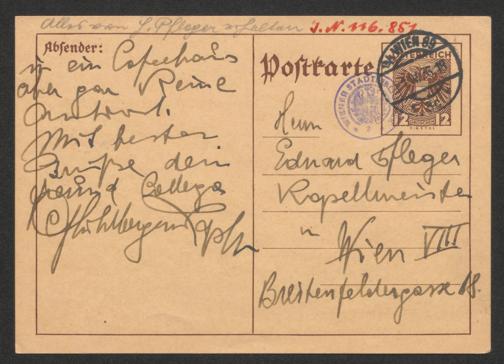 Alles von J. Pfleger erhalten J.N. 116.851
Absender:
in ein Cafeehaus
aber gar Keine
Antwort.
Mit besten
Grüße dein
Freund Collega
Postkarte
WIENER STADT
12 12
Herrn
Eduard Pfleger
Kapellmeister
in Wien VIII
Breitenfeldergasse 18.